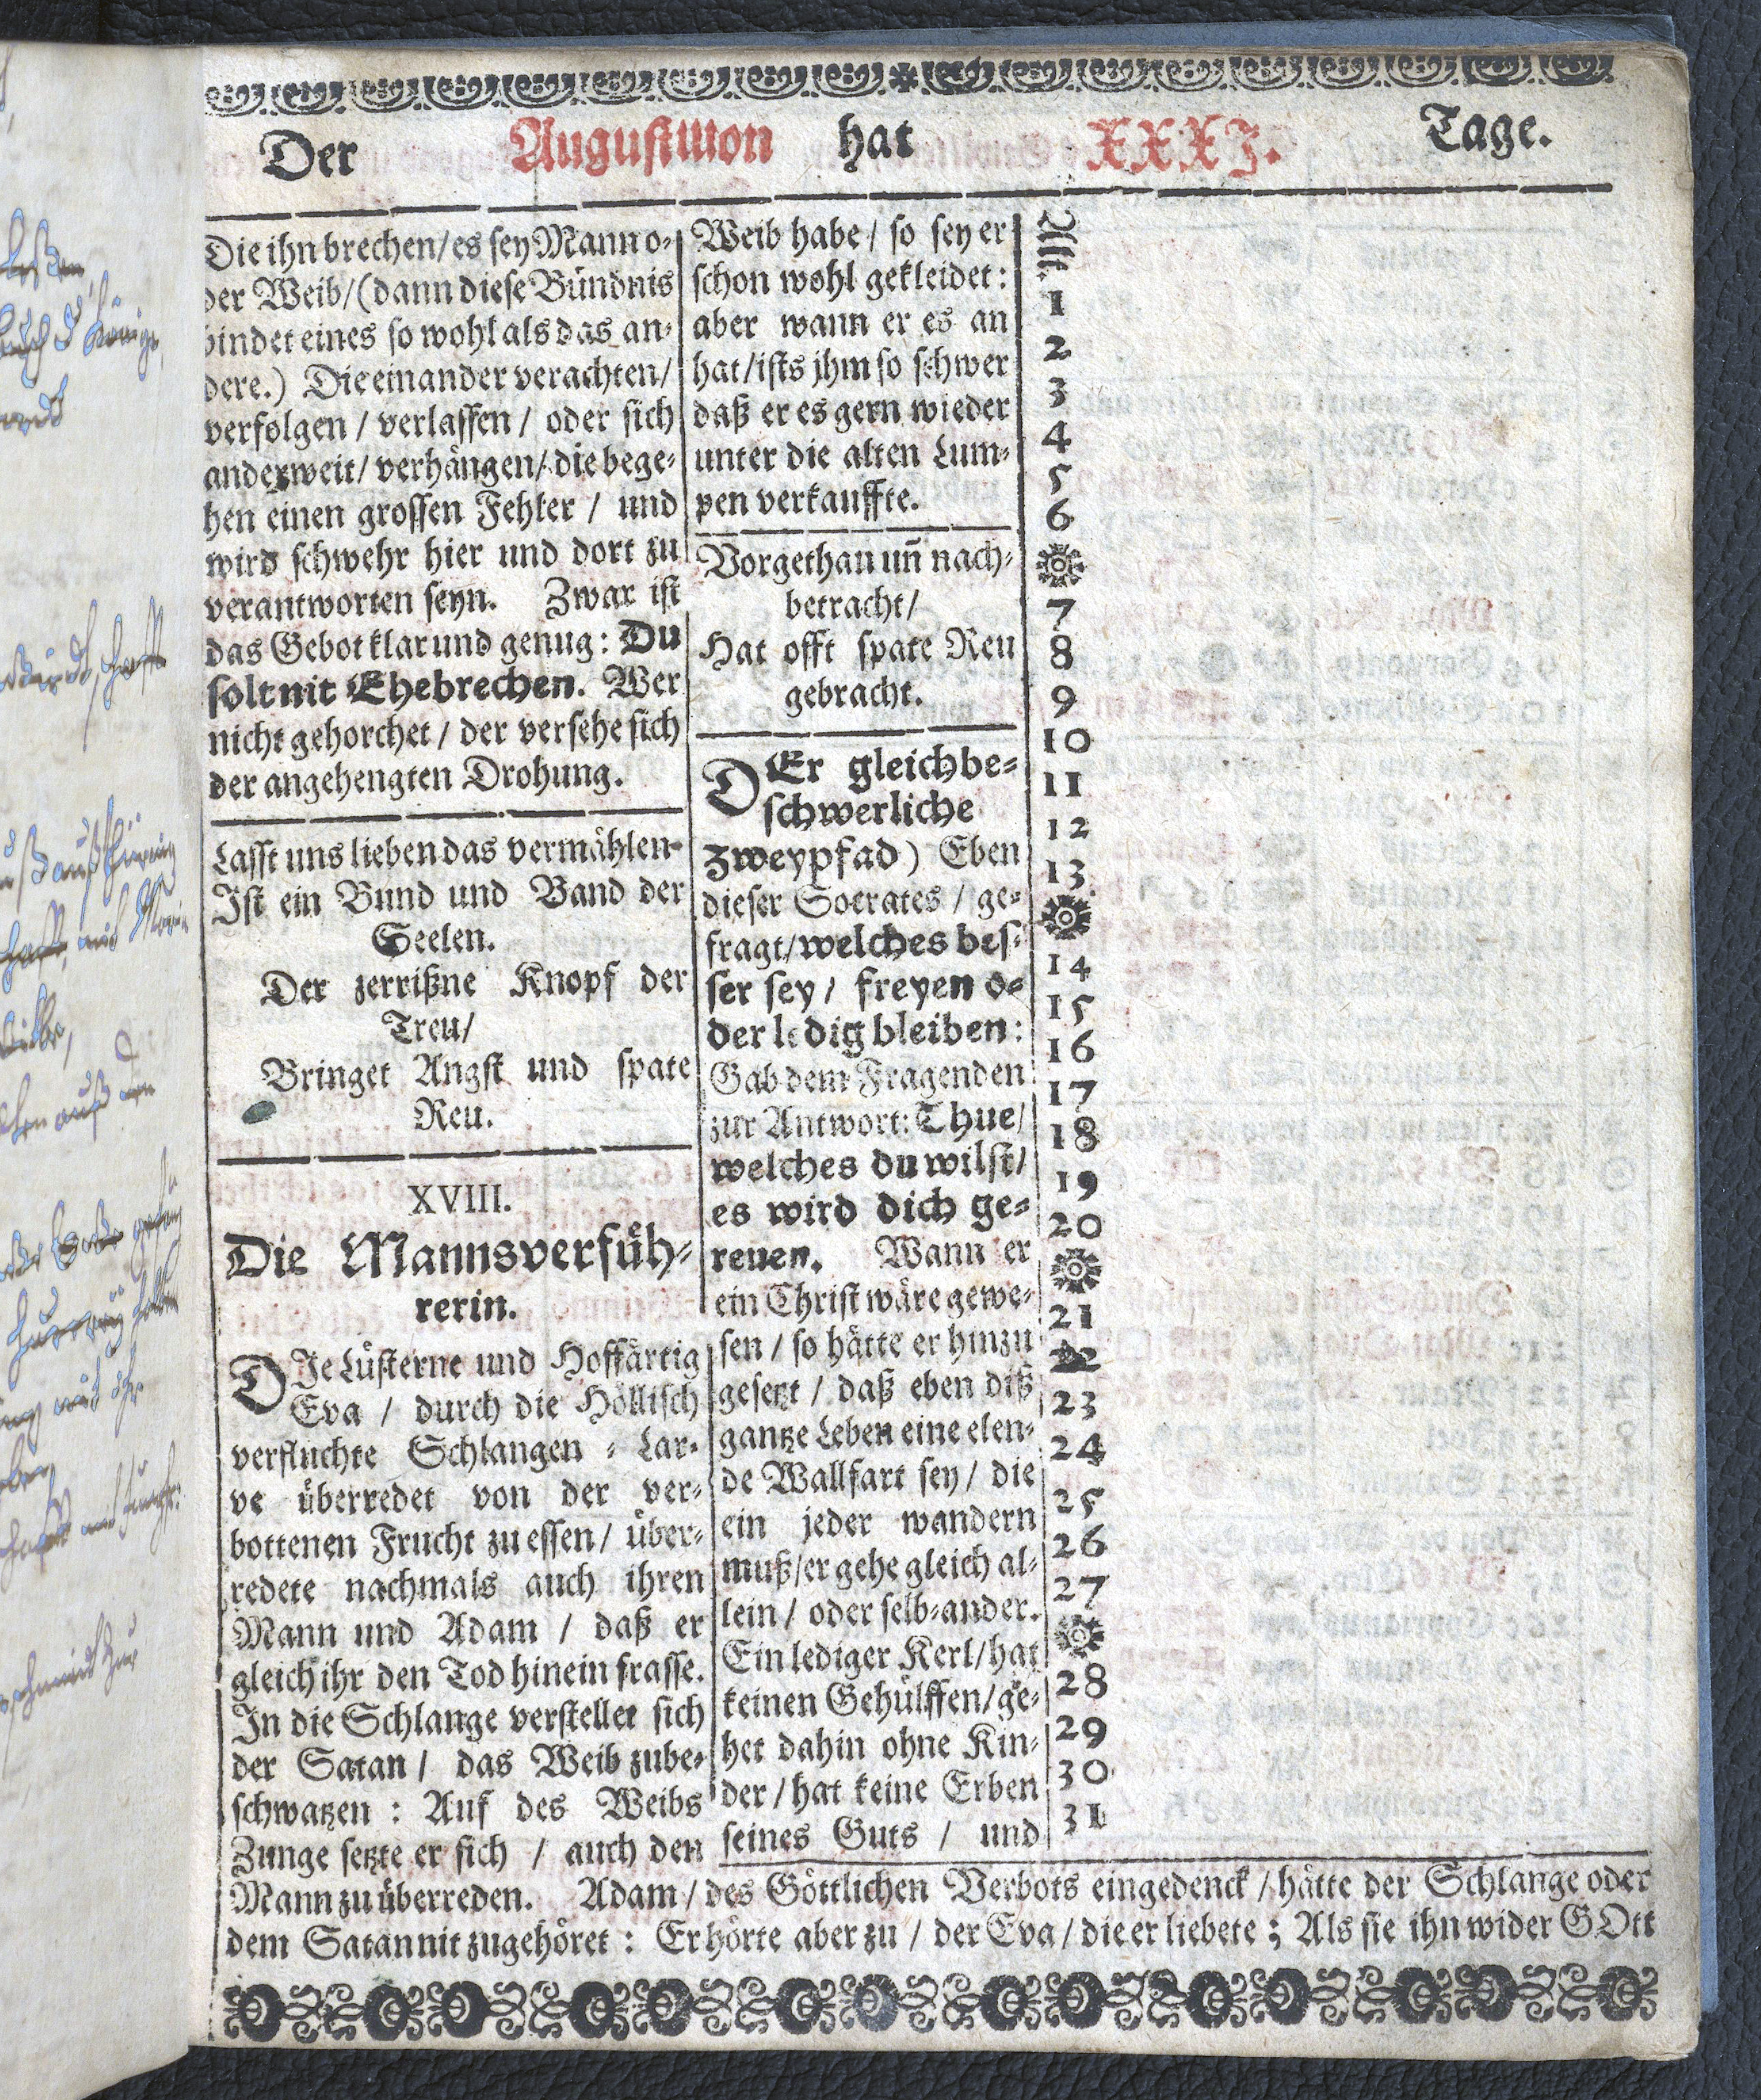 Der Augustmon hat XXXI. Tage.
Die ihn brechen/es sey Mann o-
der Weib/(dann diese Bündnis
bindet eines so wohl als das an-
dere.) Die einander verachten/
verfolgen / verlassen / oder sich
anderweit/ verhängen/ die bege-
hen einen grossen Fehler / und
wird schwehr hier und dort zu
verantworten seyn. Zwar ist
das Gebot klar und genug: Du
solt nit Ehebrechen. Wer
nicht gehorchet / der versehe sich
der angehengten Drohung.
Lasst uns lieben das vermählen
Ist ein Bund und Band der
Seelen.
Der zerrißne Knopf der
Treu/
Bringet Angst und spate
Reu.
XVIII.
Die Mannsverfüh-
rerin.
DIe Lüsterne und Hoffärtig
Eva / durch die Höllisch
verfluchte Schlangen - Lar-
ve überredet von der ver-
bottenen Frucht zu essen/ über-
redete nachmals auch ihren
Mann und Adam / daß er
gleich ihr den Tod hinein frasse.
In die Schlange verstellet sich
der Satan / das Weib zube-
schwatzen : Auf des Weibs
Zunge setzte er sich / auch den
Weib habe / so sey er
schon wohl gekleidet:
aber wann er es an
hat/ists jhm so schwer
daß er es gern wieder
unter die alten Lum-
pen verkauffte.
Vorgethan uñ nach-
betracht/
Hat offt spate Reu
gebracht.
DEr gleichbe-
schwerliche
Zweypfad) Eben
dieser Socrates / ge-
fragt/welches bes-
ser sey / freyen o-
der ledig bleiben:
Gab dem Fragenden
zur Antwort: Thue/
welches du wilst/
es wird dich ge-
reuen. Wann er
ein Christ wäre gewe-
sen / so hätte er hinzu
gesetzt / daß eben diß
gantze Leben eine elen-
de Wallfart sey / die
ein jeder wandern
muß/er gehe gleich al-
lein / oder selb-ander.
Ein lediger Kerl/hat
keinen Gehülffen/ge-
het dahin ohne Kin-
der / hat keine Erben
seines Guts / und
Alt.
1
2
3
4
5
6
7
8
9
10
11
12
13
14
15
16
17
18
19
20
21
22
23
24
25
26
27
28
29
30
31
Mann zu überreden. Adam / des Göttlichen Verbots eingedenck / hätte der Schlange oder
dem Satan nit zugehöret : Er hörte aber zu / der Eva / die er liebete ; Als sie ihn wider GOtt